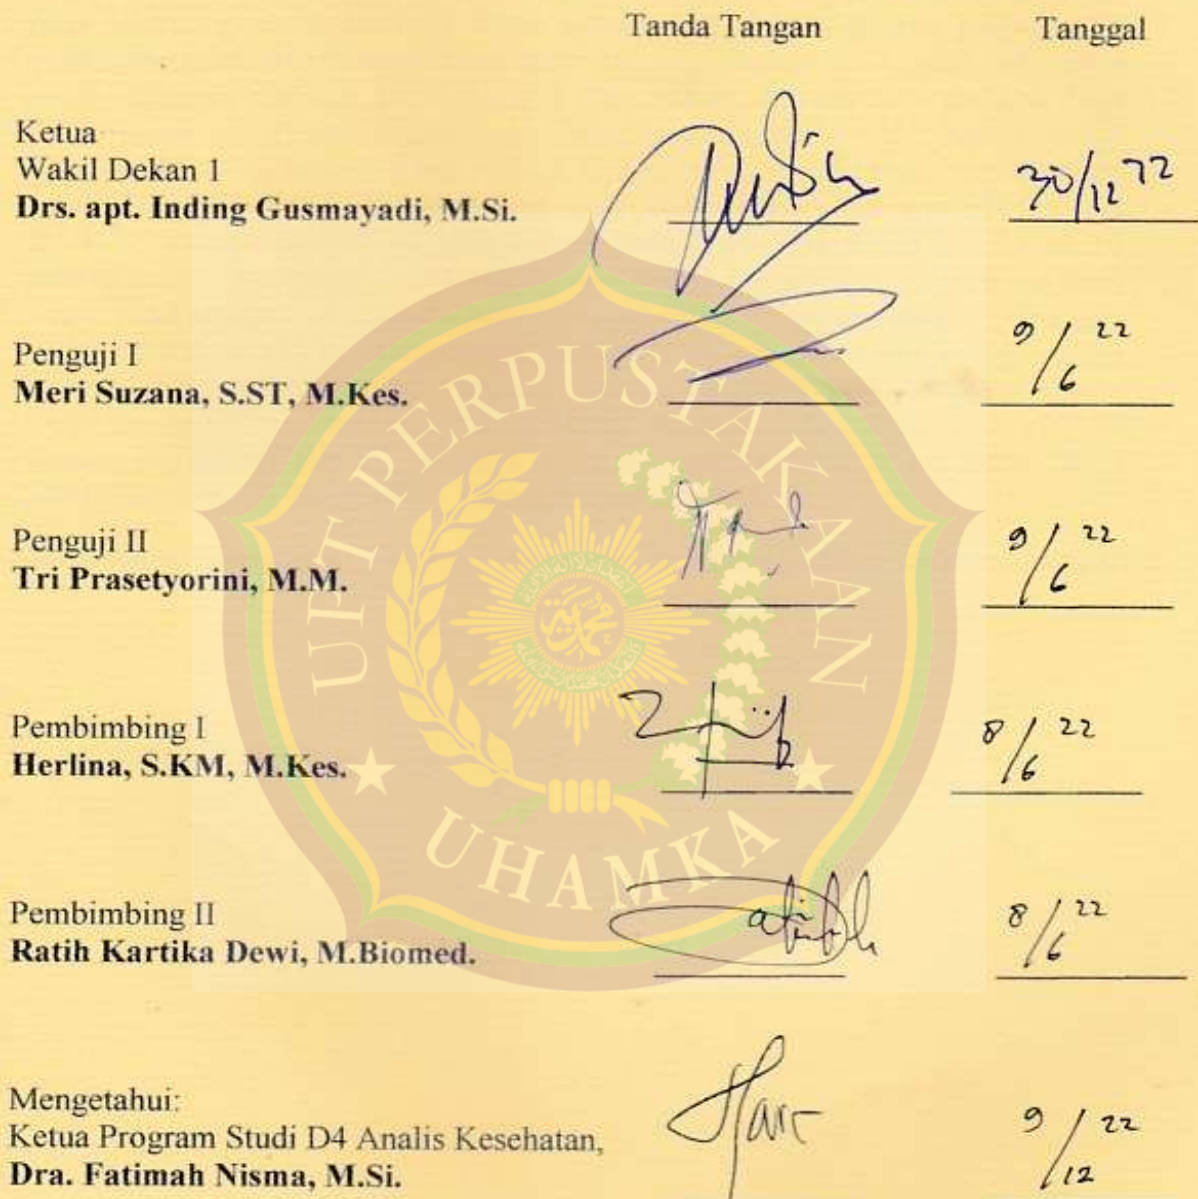 Tanda Tangan Tanggal
Ketua
Wakil Dekan 1
Drs. apt. Inding Gusmayadi, M.Si.
30/12 22
Penguji I
Meri Suzana, S.ST, M.Kes.
9/6 22
Penguji II
Tri Prasetyorini, M.M.
9/6 22
Pembimbing I
Herlina, S.KM, M.Kes.
8/6 22
Pembimbing II
Ratih Kartika Dewi, M.Biomed.
8/6 22
Mengetahui:
Ketua Program Studi D4 Analis Kesehatan,
Dra. Fatimah Nisma, M.Si.
9/12 22
UPT PERPUSTAKAAN
UHAMKA